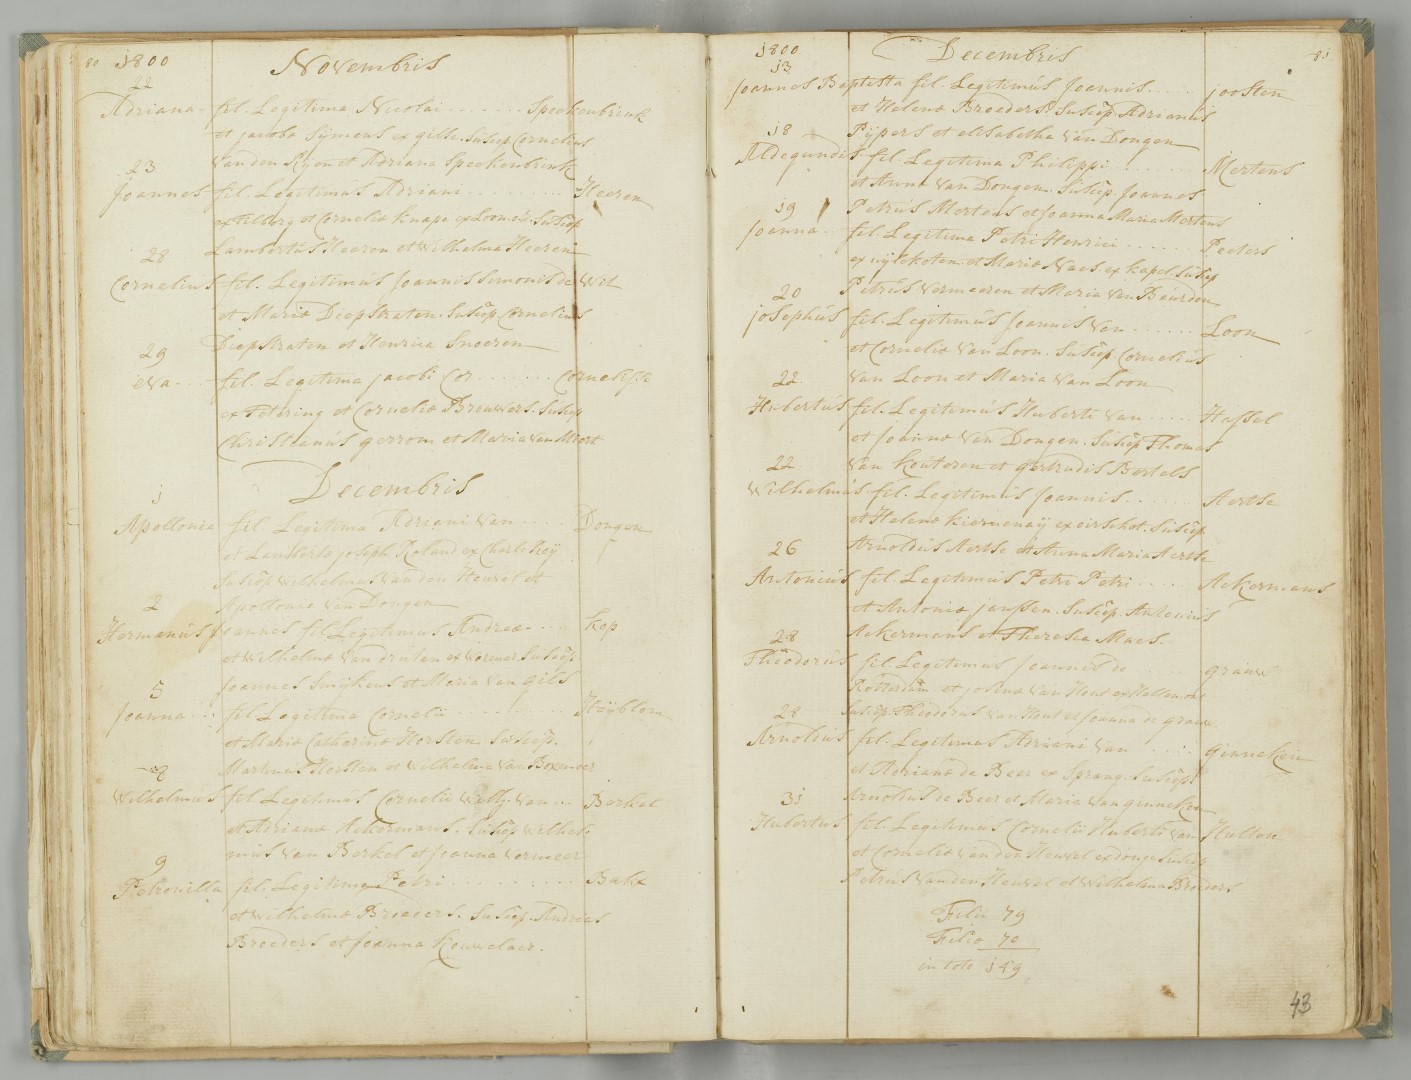 80 1800 Novembris
22
Adriana fil. Legitima Nicolai Speekenbrink
et jacoba Sijmens ex gilse. Susup Cornelius
Vanden Rijen et Adriana Speekenbrink
23
Joannes fil. Legitimus Adriani Heeren
ex tilborg et Cornelia knaps ex Loon etc. Susup
Lambertus Heeren et Wilhelma Heeren
28
Cornelius fil. Legitimus Joannis Simonis de Wit
et Maria Diepstraten. Susup. Cornelius
Diepstraten et Henrica Snoeren
29
eva fil. Legitima jacobi Cor Cornelisse
ex Petering et Cornelia Brouwers. Susup
Christianus gerrom et Maria Van Moort
Decembris
1
Apollonia fil. Legitima Adriani Van Dongen
et Lamberta joseph Roland ex Charleroij
Susup Wilhelmus Van den Heuvel et
Apollonia Van Dongen
2
Hermanus Joannes fil. Legitimus Andreæ kop
et Wilhelma Van druten ex Wormer. Susup
Joannes Snijkens et Maria Van gils
5
Joanna fil. Legitima Cornelii Heijblom
et Maria Catharina Horsten. Suscep.
Martinus Horsten et Wilhelma Van Boxmeer
8
Wilhelmus fil. Legitimus Cornelii Van Berkel
et Adriana Ackermans. Susup. Wilhel-
mus Van Berkel et Joanna Vermeer
9
Petronilla fil. Legitima Petri Bakx
et Wilhelma Broeders. Susup. Andreas
Broeders et Joanna Kouwelaer.
1800 Decembris 81
13
Joannes Baptista fil. Legitimus Joannis joosten
et Helena Broeders. Susup. Adrianus
Pijpers et elisabetha Van Dongen
18
Aldegundis fil. Legitima Philippi Mertens
et Anna Van Dongen. Susup. Joannes
Petrus Mertens et Joanna Maria Mertens
19
Joanna fil. Legitima Petri Henrici Peeters
et Maria Naes ex kapel Susup
Petrus Vermeeren et Maria Van Beurden
20
josephus fil. Legitimus Joannis Van Loon
et Cornelia Van Loon. Susup. Cornelius
Van Loon et Maria Van Loon
22
Hubertus fil. Legitimus Huberti Van Hassel
et Joanna Van Dongen. Susup Thomas
Van kouteren et gertrudis Bertels
22
Wilhelmus fil. Legitimus Joannis Aertse
et Helena kiernenaij ex oirschot. Susup
Arnoldus Aertse et Anna Maria Aertse
26
Antonius fil. Legitimus Petri Petri Ackermans
et Antonia janssen. Susup. Antonius
Ackermans et Theresia Maes.
28
Theodorus fil. Legitimus Joannis de graaw
Rotterdam et Van Hout ex
Susup. Theodorus Van Hout et Joanna de graaw
28
Arnoldus fil. Legitimus Adriani Van ginneken
et Adriana de Beer ex Sprang. Susup.
Arnoldus de Beer et Maria Van ginneken
31
Hubertus fil. Legitimus Cornelii Huberti Van Hulten
et Cornelia Vanden Heuvel ex donge Susup
Petrus Vanden Heuvel et Wilhelma Broeders
Filii 79
Filiæ 70
in toto 149
43